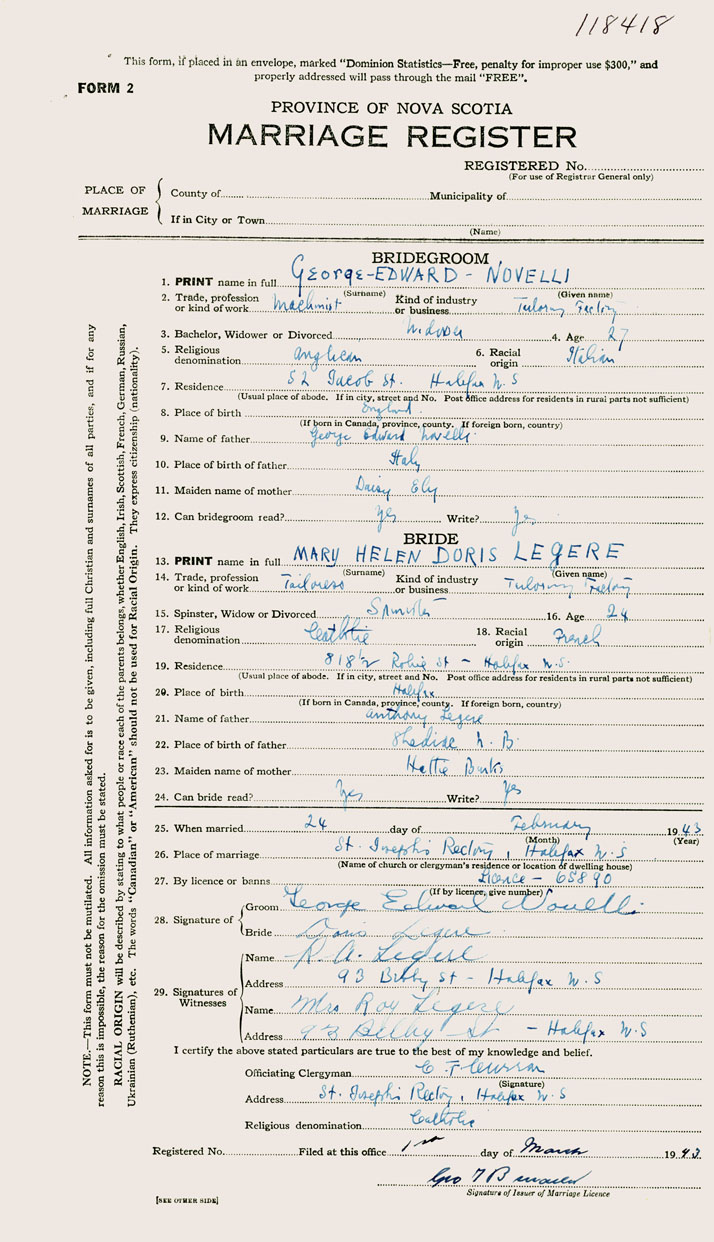 118418
This form, if placed in an envelope, marked "Dominion Statistics—Free, penalty for improper use $300," and
properly addressed will pass through the mail "FREE".
FORM 2
PROVINCE OF NOVA SCOTIA
MARRIAGE REGISTER
REGISTERED No.
(For use of Registrar General only)
PLACE OF MARRIAGE
County of Municipality of
If in City or Town
(Name)
BRIDEGROOM
1. PRINT name in full GEORGE-EDWARD - NOVELLI
(Surname) (Given name)
2. Trade, profession or kind of work Machinist Kind of industry or business Tailoring Factory
3. Bachelor, Widower or Divorced Widower 4. Age 27
5. Religious denomination Anglican 6. Racial origin Italian
7. Residence 52 Jacob St. Halifax N.S
(Usual place of abode. If in city, street and No. Post office address for residents in rural parts not sufficient)
8. Place of birth England
(If born in Canada, province, county. If foreign born, country)
9. Name of father George Edward Novelli
10. Place of birth of father Italy
11. Maiden name of mother Daisy Ely
12. Can bridegroom read? Yes Write? Yes
BRIDE
13. PRINT name in full MARY HELEN DORIS LEGERE
(Surname) (Given name)
14. Trade, profession or kind of work Tailoress Kind of industry or business Tailoring Factory
15. Spinster, Widow or Divorced Spinster 16. Age 24
17. Religious denomination Catholic 18. Racial origin French
19. Residence 818½ Robie St - Halifax N.S.
(Usual place of abode. If in city, street and No. Post office address for residents in rural parts not sufficient)
20. Place of birth Halifax
(If born in Canada, province, county. If foreign born, country)
21. Name of father Anthony Legere
22. Place of birth of father Shediac N.B.
23. Maiden name of mother Hattie
24. Can bride read? Yes Write? Yes
25. When married 24 day of February 1943
(Month) (Year)
26. Place of marriage St. Joseph's Rectory, Halifax N.S
(Name of church or clergyman's residence or location of dwelling house)
27. By licence or banns Licence - 65890
(If by licence, give number)
28. Signature of
Groom George Edward Novelli
Bride Doris Legere
29. Signatures of Witnesses
Name R. A. Legere
Address 93 Bilby St - Halifax N.S
Name Mrs Roy Legere
Address 93 Bilby St - Halifax N.S
I certify the above stated particulars are true to the best of my knowledge and belief.
Officiating Clergyman C. F.
(Signature)
Address St. Joseph's Rectory, Halifax N.S
Religious denomination Catholic
Registered No. Filed at this office 1st day of March 1943
Geo
Signature of Issuer of Marriage Licence
[SEE OTHER SIDE]
NOTE.—This form must not be mutilated. All information asked for is to be given, including full Christian and surnames of all parties, and if for any
reason this is impossible, the reason for the omission must be stated.
RACIAL ORIGIN will be described by stating to what people or race each of the parents belongs, whether English, Irish, Scottish, French, German, Russian,
Ukrainian (Ruthenian), etc. The words "Canadian" or "American" should not be used for Racial Origin. They express citizenship (nationality).